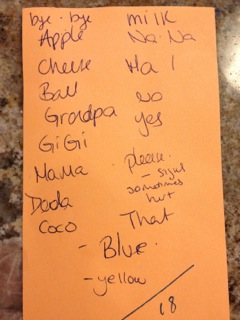 bye-bye
Apple
Cheese
Ball
Grandpa
GiGi
MaMa
Dada
Coco
milk
Na-Na
Ha!
no
yes
please.
- signs
sometimes
hurt
That
- Blue.
- yellow
18